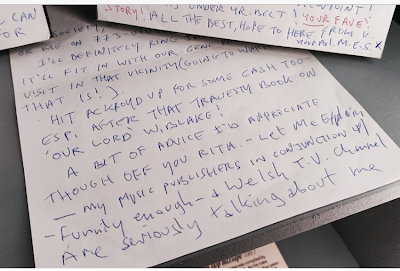 L CAN
FOR
UNDER YR. BELT!
STORY! ALL THE BEST, HOPE TO HERE FROM U.
YOUR FAVE!
SOCIETY,
OR ME ON 773-0
I'LL DEFINITELY RING
IT'LL FIT IN WITH OUR GENE
VISIT IN THAT VICINITY (GOING TO WALES
THAT IS!)
HIT ACKROYD UP FOR SOME CASH TOO-
ESP. AFTER THAT TRAVESTY BOOK ON
'OUR LORD' W. BLAKE!
A BIT OF ADVICE I'D APPRECIATE
THOUGH OFF YOU RITA. - LET ME EXPLAIN
- MY MUSIC PUBLISHERS IN CONJUNCTION W/
- FUNNILY ENOUGH - A WELSH T.V. CHANNEL
ARE SERIOUSLY TALKING ABOUT ME